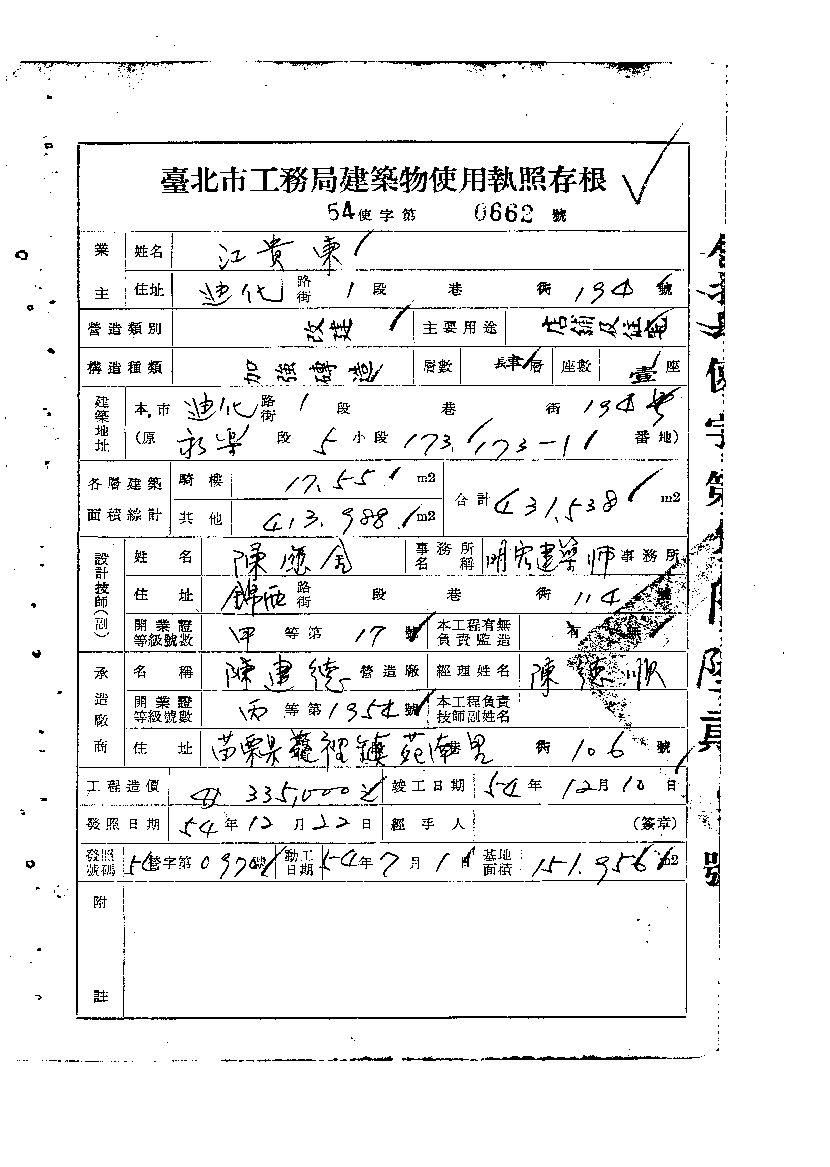 臺北市工務局建築物使用執照存根
54使字第 0662 號
業主 姓名 江貴東
住址 迪化 路街 1 段 巷 街 194 號
營造類別 改建 主要用途 店舖及住宅
構造種類 加強磚造 層數 肆層 座數 壹座
建築地址 本市 迪化 路街 1 段 巷 街 194號
(原 永樂 段 5 小段 173, 173-1 番地)
各層建築面積總計 騎樓 17.55 m2 合計 431.538 m2
其他 413.988 m2
設計技師(副) 姓名 陳應 事務所名稱 明宏建築師事務所
住址 錦西 路街 段 巷 街 114 號
開業證等級號數 甲等第 17 號 本工程有無負責監造 有
承造廠商 名稱 陳建德 營造廠 經理姓名 陳德順
開業證等級號數 丙等第 1954 號 本工程負責技師副姓名
住址 苗栗縣 裡鎮苑南里 巷 街 106 號
工程造價 335,000元 竣工日期 54年 12月 10日
發照日期 54年 12月 22日 經手人 (簽章)
發照號碼 54營字第 0970號 動工日期 54年 7月 1日 基地面積 151.956 m2
附註
使字第 號